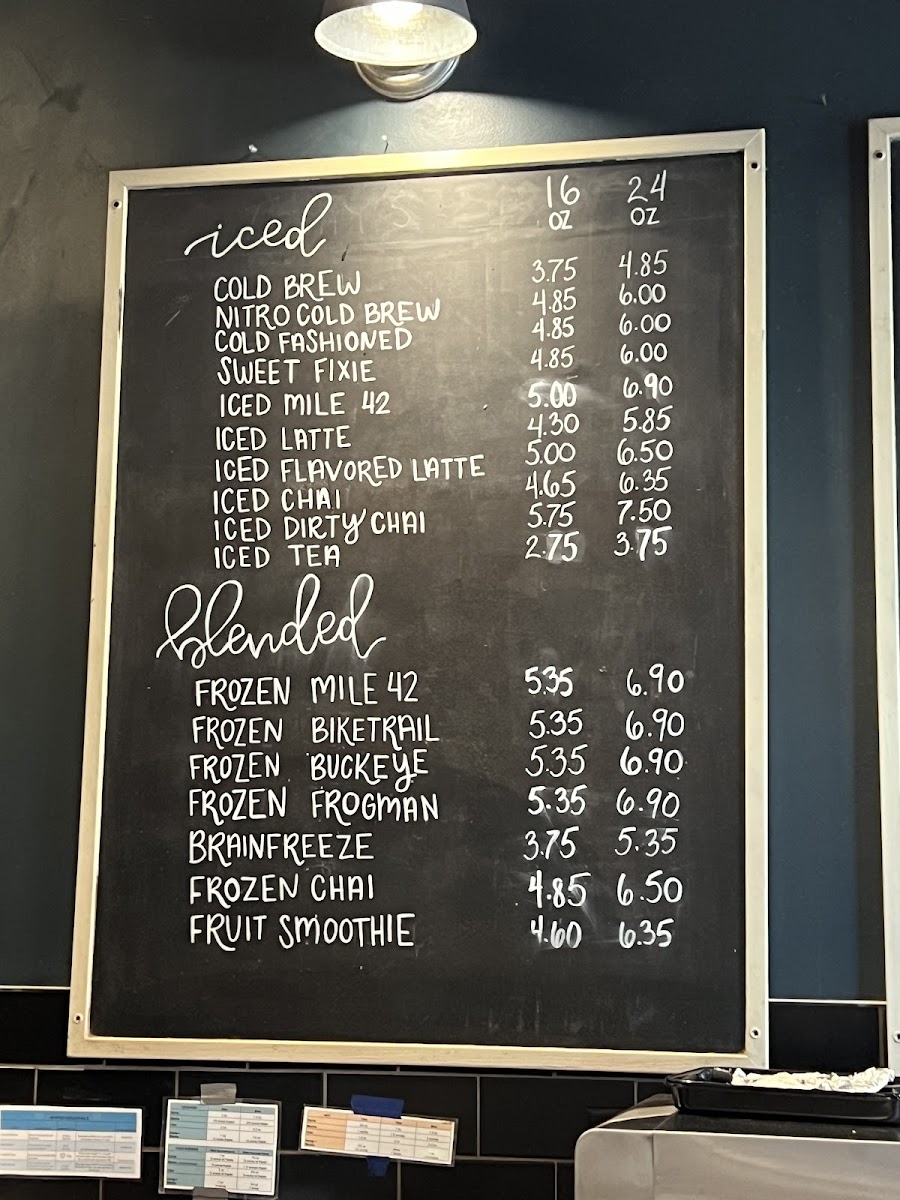 iced 16 OZ 24 OZ
COLD BREW 3.75 4.85
NITRO COLD BREW 4.85 6.00
COLD FASHIONED 4.85 6.00
SWEET FIXIE 4.85 6.00
ICED MILE 42 5.00 6.90
ICED LATTE 4.30 5.85
ICED FLAVORED LATTE 5.00 6.50
ICED CHAI 4.65 6.35
ICED DIRTY CHAI 5.75 7.50
ICED TEA 2.75 3.75
blended
FROZEN MILE 42 5.35 6.90
FROZEN BIKETRAIL 5.35 6.90
FROZEN BUCKEYE 5.35 6.90
FROZEN FROGMAN 5.35 6.90
BRAINFREEZE 3.75 5.35
FROZEN CHAI 4.85 6.50
FRUIT SMOOTHIE 4.60 6.35